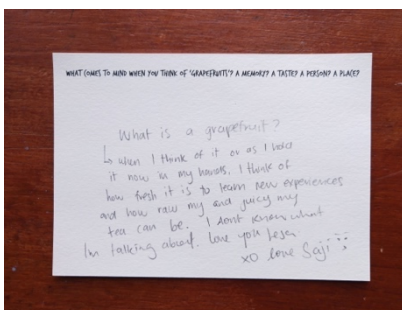 WHAT COMES TO MIND WHEN YOU THINK OF 'GRAPEFRUITS'? A MEMORY? A TASTE? A PERSON? A PLACE?
What is a grapefruit?
↳ when I think of it or as I hold
it now in my hands. I think of
how fresh it is to learn new experiences
and how raw my and juicy my
tea can be. I dont know what
Im talking about. love you
xo love Saji